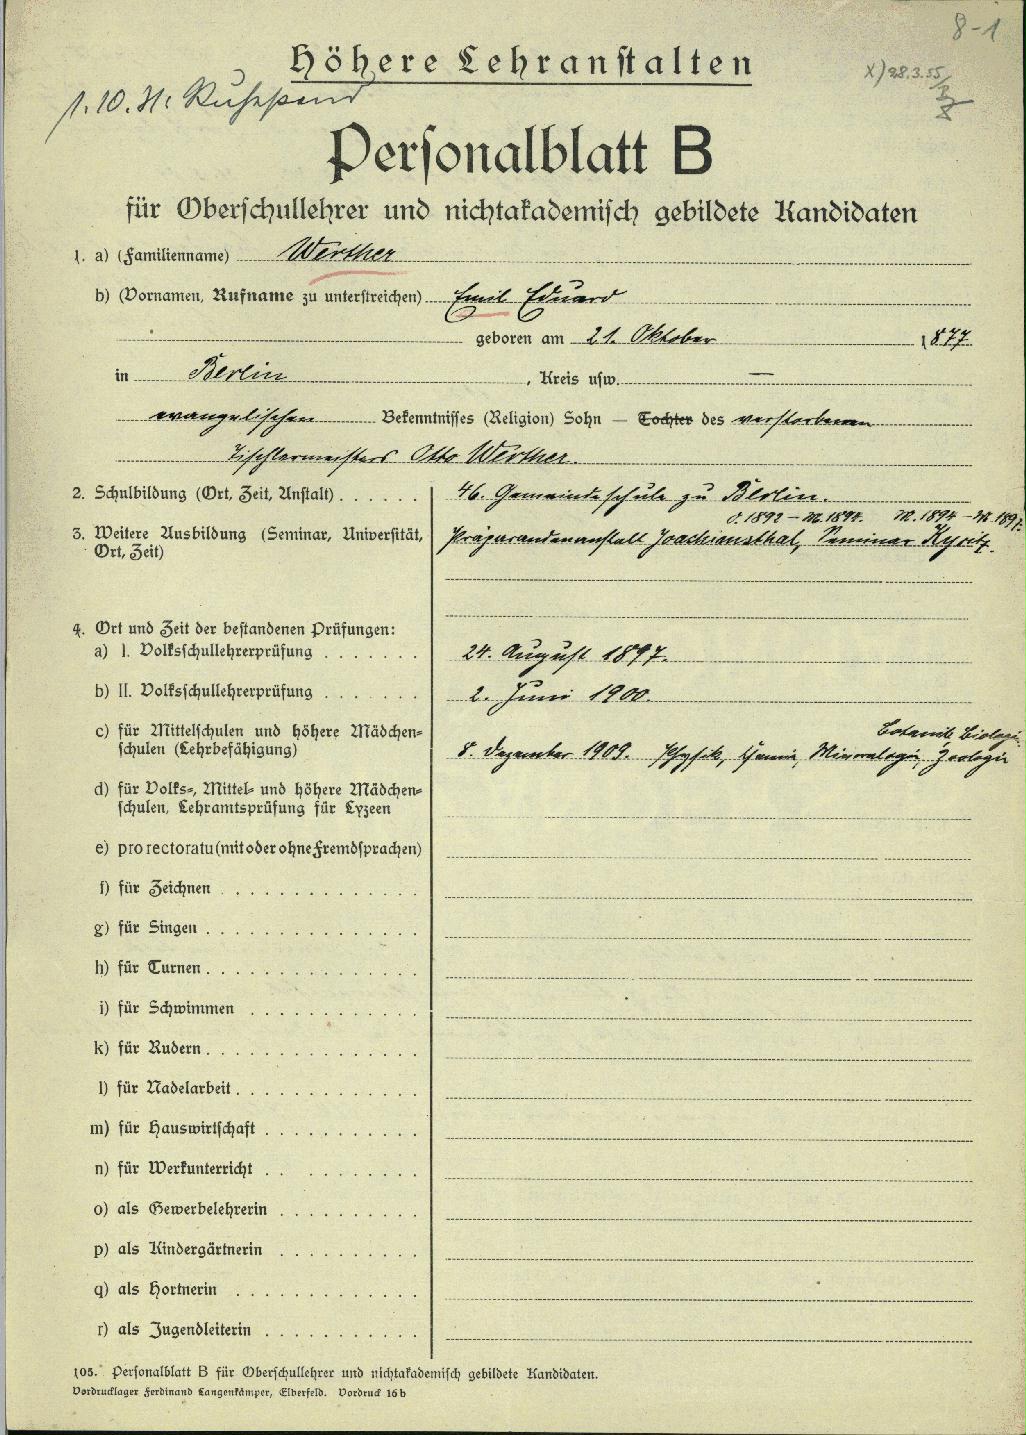 8-1
Höhere Lehranstalten
x) 28.3.55
1.10.31: Ruhestand
Personalblatt B
für Oberschullehrer und nichtakademisch gebildete Kandidaten
1. a) (Familienname) Werther
b) (Vornamen, Rufname zu unterstreichen) Emil Eduard
geboren am 21. Oktober 1877
in Berlin, Kreis usw. —
evangelischen Bekenntnisses (Religion) Sohn — Tochter des verstorbenen
Tischlermeisters Otto Werther.
2. Schulbildung (Ort, Zeit, Anstalt) . . . . . . 46. Gemeindeschule zu Berlin.
O. 1892 – M. 1894. M. 1894 – M. 1897.
3. Weitere Ausbildung (Seminar, Universität, Präparandenanstalt Joachimsthal, Seminar Kyritz.
Ort, Zeit)
4. Ort und Zeit der bestandenen Prüfungen:
a) I. Volksschullehrerprüfung . . . . . . . 24. August 1897.
b) II. Volksschullehrerprüfung . . . . . . . 2. Juni 1900.
Botanik Biologie
c) für Mittelschulen und höhere Mädchen= 8. Dezember 1909. Physik, Chemie, Mineralogie, Zoologie
schulen (Lehrbefähigung)
d) für Volks=, Mittel= und höhere Mädchen=
schulen, Lehramtsprüfung für Lyzeen
e) pro rectoratu (mit oder ohne Fremdsprachen)
f) für Zeichnen . . . . . . . . . . . . .
g) für Singen . . . . . . . . . . . . . .
h) für Turnen . . . . . . . . . . . . . .
i) für Schwimmen . . . . . . . . . . .
k) für Rudern . . . . . . . . . . . . . .
l) für Nadelarbeit . . . . . . . . . . . .
m) für Hauswirtschaft . . . . . . . . . .
n) für Werkunterricht . . . . . . . . . .
o) als Gewerbelehrerin . . . . . . . . .
p) als Kindergärtnerin . . . . . . . . .
q) als Hortnerin . . . . . . . . . . . .
r) als Jugendleiterin . . . . . . . . . .
105. Personalblatt B für Oberschullehrer und nichtakademisch gebildete Kandidaten.
Vordrucklager Ferdinand Langenkämper, Elberfeld. Vordruck 16 b